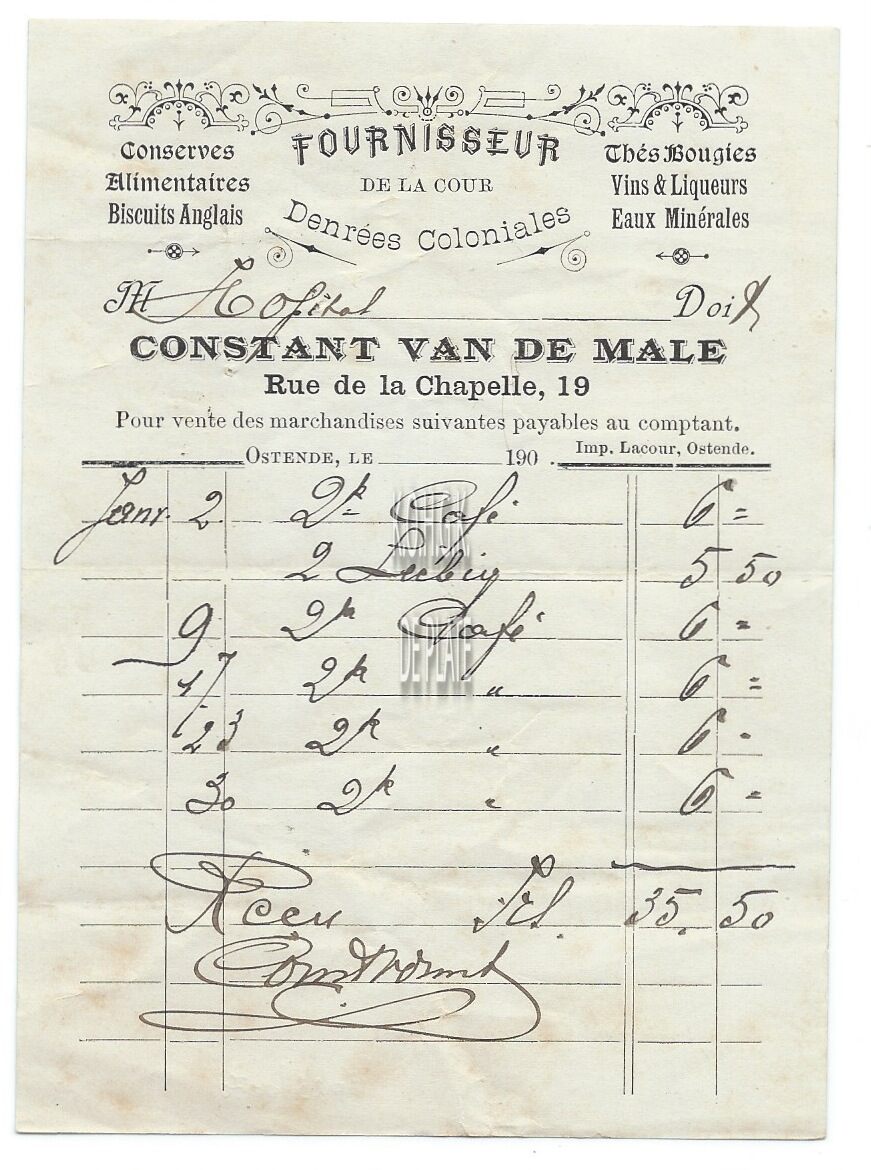 FOURNISSEUR
DE LA COUR
Denrées Coloniales
Conserves
Alimentaires
Biscuits Anglais
Thés Bougies
Vins & Liqueurs
Eaux Minérales
M Hopital Doit
CONSTANT VAN DE MALE
Rue de la Chapelle, 19
Pour vente des marchandises suivantes payables au comptant.
OSTENDE, LE 190 .
Imp. Lacour, Ostende.
Janr. 2 2k Café 6 =
2 Liebig 5 50
9 2k Café 6 =
17 2k " 6 =
23 2k " 6 =
30 2k " 6 =
Recu 35. 50
NORTHERN
DE PLATE